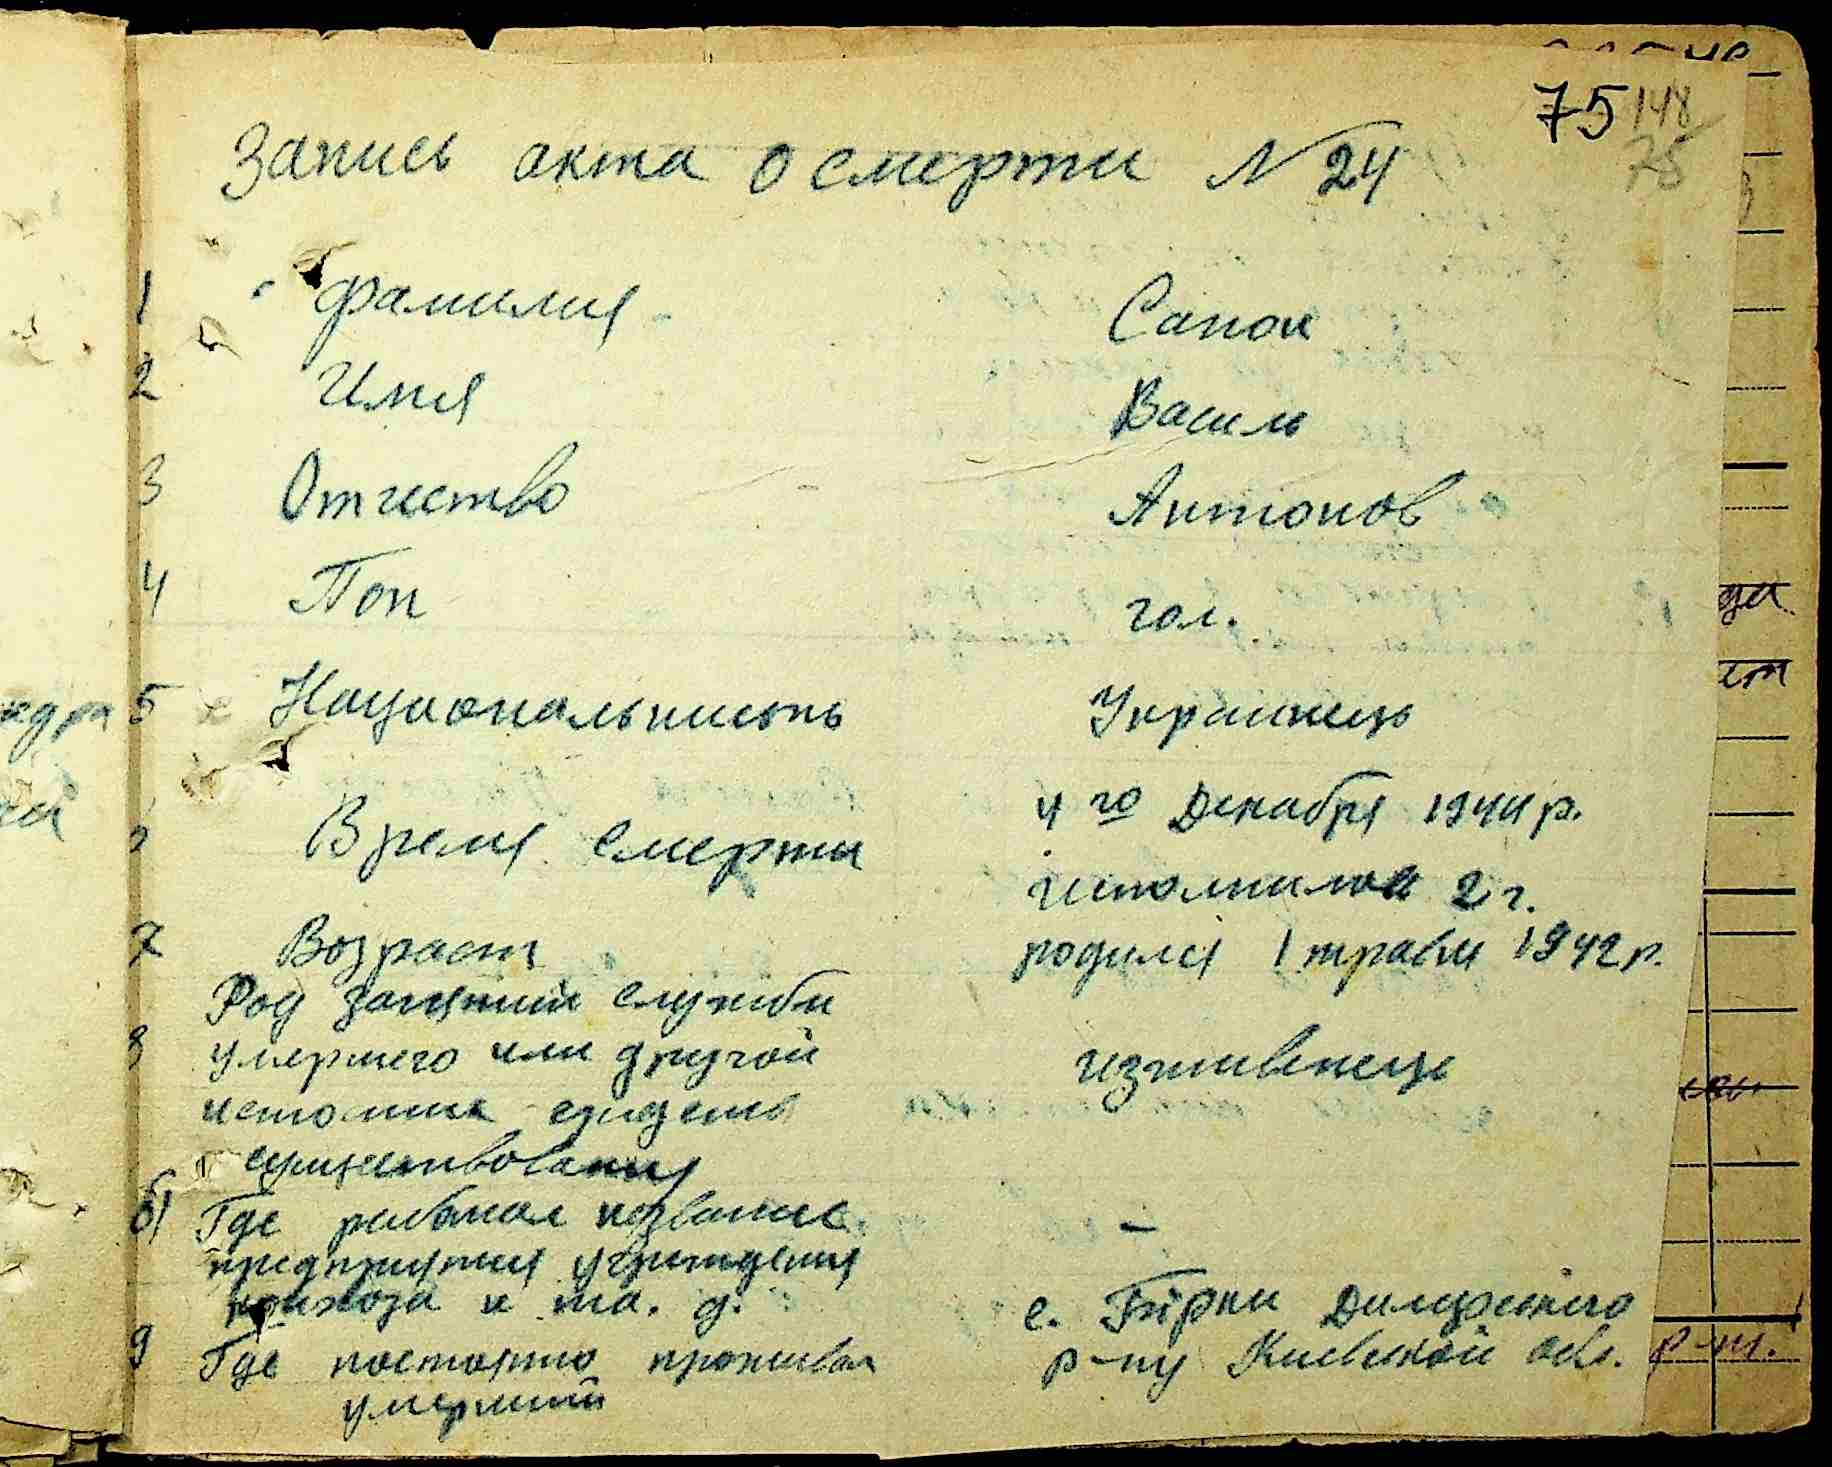 75 148
75
Запись акта о смерти N 24
1 Фамилия Сапон
2 Имя Василь
3 Отчество Антонов
4 Пол чол.
5 Национальность Українець
4 го Декабря 1944 р.
Время смерти
исполнилос 2 г.
7 Возраст родился 1 травня 1942 р.
Род занятий службы
8 умершего или другой иждивенець
источник средств
существования
б) Где работал название –
предприятия учреждения
колхоза и та. д. с. Гірки Димерского
9 Где постоянно проживал р-ну Киевской обл.
умерший
р-ш.